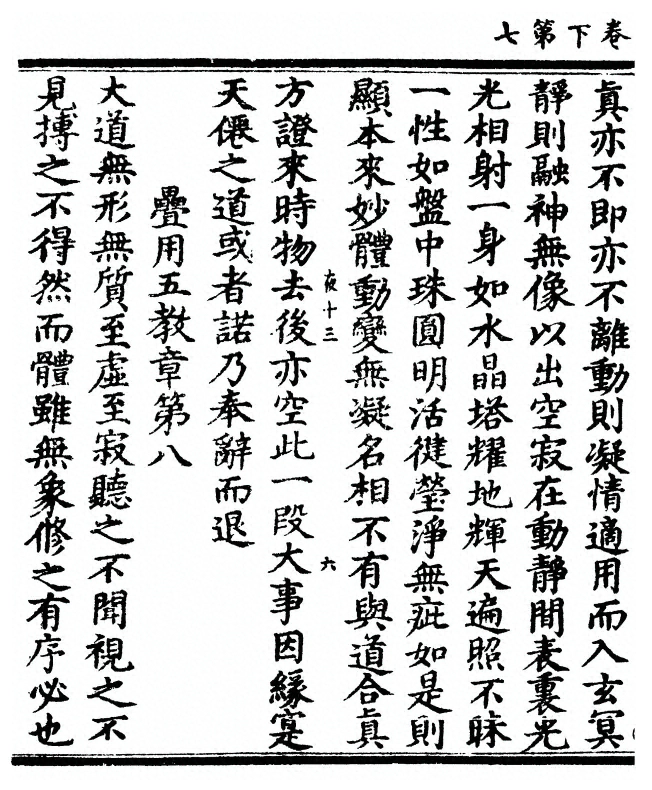 卷下第七
真亦不即亦不離動則凝情適用而入玄冥
靜則融神無像以出空寂在動靜間表裏光
光相射一身如水晶塔耀地輝天遍照不昧
一性如盤中珠圓明活健瑩淨無疵如是則
顯本來妙體動變無凝名相不有與道合真
夜十三
六
方證來時物去後亦空此一段大事因緣寔
天僊之道或者諾乃奉辭而退
疊用五教章第八
大道無形無質至虛至寂聽之不聞視之不
見摶之不得然而體雖無象修之有序必也